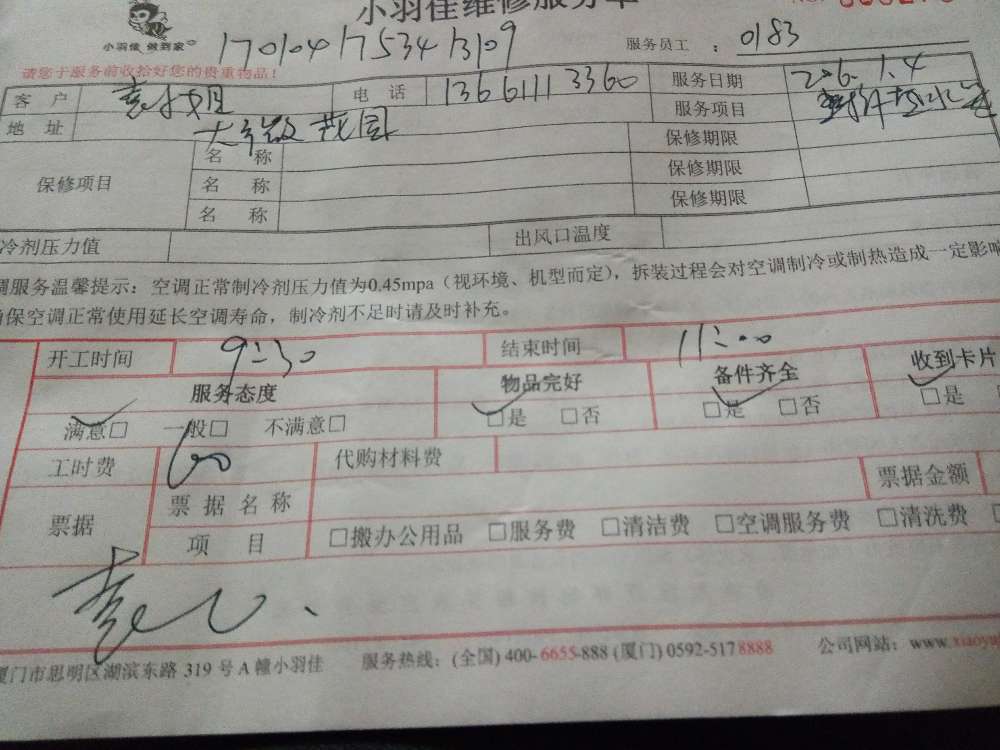 小羽佳维修服务单
小羽佳 做到家
1701041753413109 服务员工 : 0183
请您于服务前收拾好您的贵重物品!
客 户 小姐 电 话 13661113360 服务日期 1.4
地 址 花园 服务项目
保修项目 名 称 保修期限
名 称 保修期限
名 称 保修期限
冷剂压力值 出风口温度
调服务温馨提示：空调正常制冷剂压力值为0.45mpa（视环境、机型而定），拆装过程会对空调制冷或制热造成一定影响
确保空调正常使用延长空调寿命，制冷剂不足时请及时补充。
开工时间 9:30 结束时间 11:00
服务态度 物品完好 备件齐全 收到卡片
满意□ 一般□ 不满意□ □是 □否 □是 □否 □是
工时费 60 代购材料费
票据 票据名称 票据金额
项 目 □搬办公用品 □服务费 □清洁费 □空调服务费 □清洗费
厦门市思明区湖滨东路 319 号 A 幢小羽佳 服务热线：(全国) 400-6655-888 (厦门) 0592-5178888 公司网站：www.xiaoyu